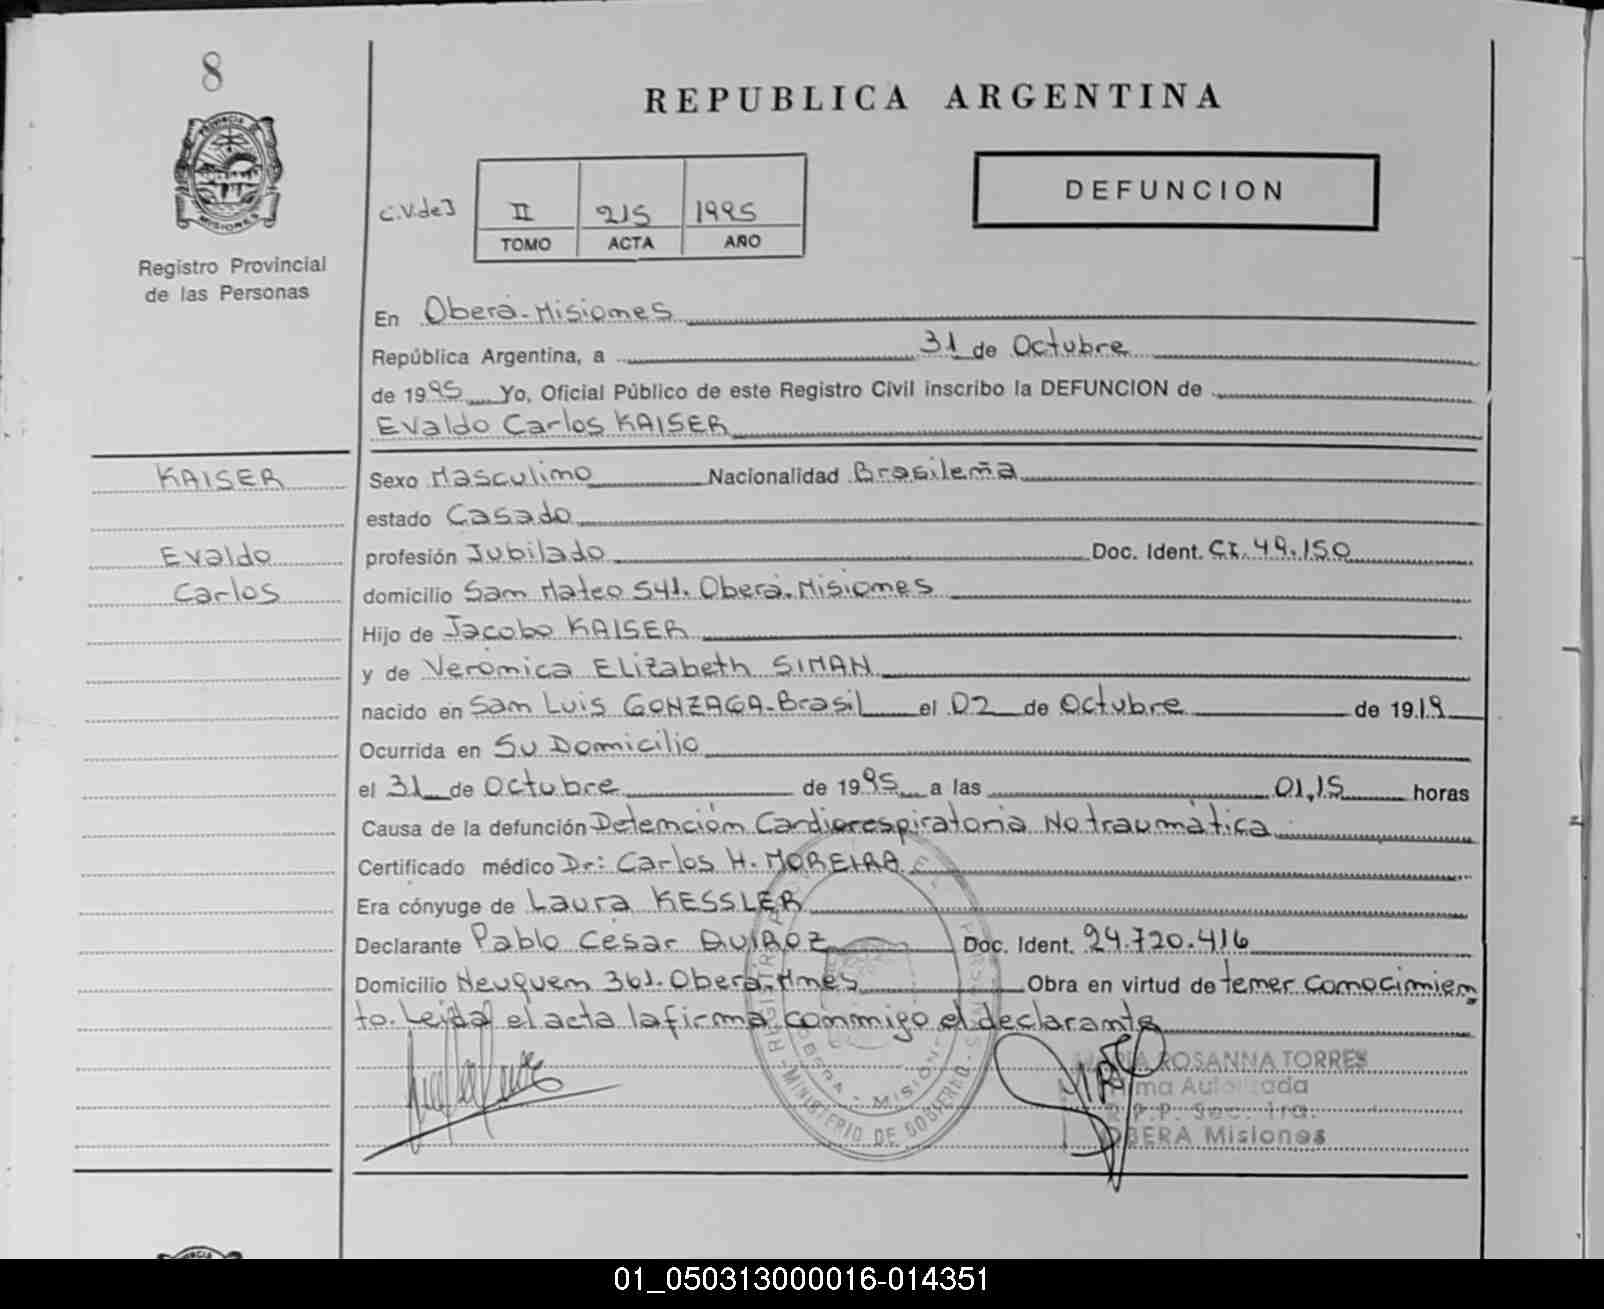 8
REPUBLICA ARGENTINA
PROVINCIA DE
MISIONES
Registro Provincial
de las Personas
DEFUNCION
C.V.de J
II 215 1995
TOMO ACTA AÑO
En Oberá-Misiones
República Argentina, a 31 de Octubre
de 1995 Yo, Oficial Público de este Registro Civil inscribo la DEFUNCION de
Evaldo Carlos KAISER
KAISER
Evaldo
Carlos
Sexo Masculino Nacionalidad Brasileña
estado Casado
profesión Jubilado Doc. Ident. CI. 49.150
domicilio San Mateo 541. Oberá. Misiones
Hijo de Jacobo KAISER
y de Verónica Elizabeth SIMAN
nacido en San Luis GONZAGA-Brasil el 02 de Octubre de 1919
Ocurrida en Su Domicilio
el 31 de Octubre de 1995 a las 01,15 horas
Causa de la defunción Detención Cardiorespiratoria No traumática
Certificado médico Dr: Carlos H. MOREIRA
Era cónyuge de Laura KESSLER
Declarante Pablo César QUIROZ Doc. Ident. 24.720.416
Domicilio Neuquen 361. Oberá-Mnes Obra en virtud de tener conocimien
to. Leída el acta la firma conmigo el declarante
MINISTERIO DE GOBIERNO
OBERA - MISIONES
MARIA ROSANNA TORRES
Firma Autorizada
R.P.P. Sec. 1ra.
OBERA Misiones
01_050313000016-014351